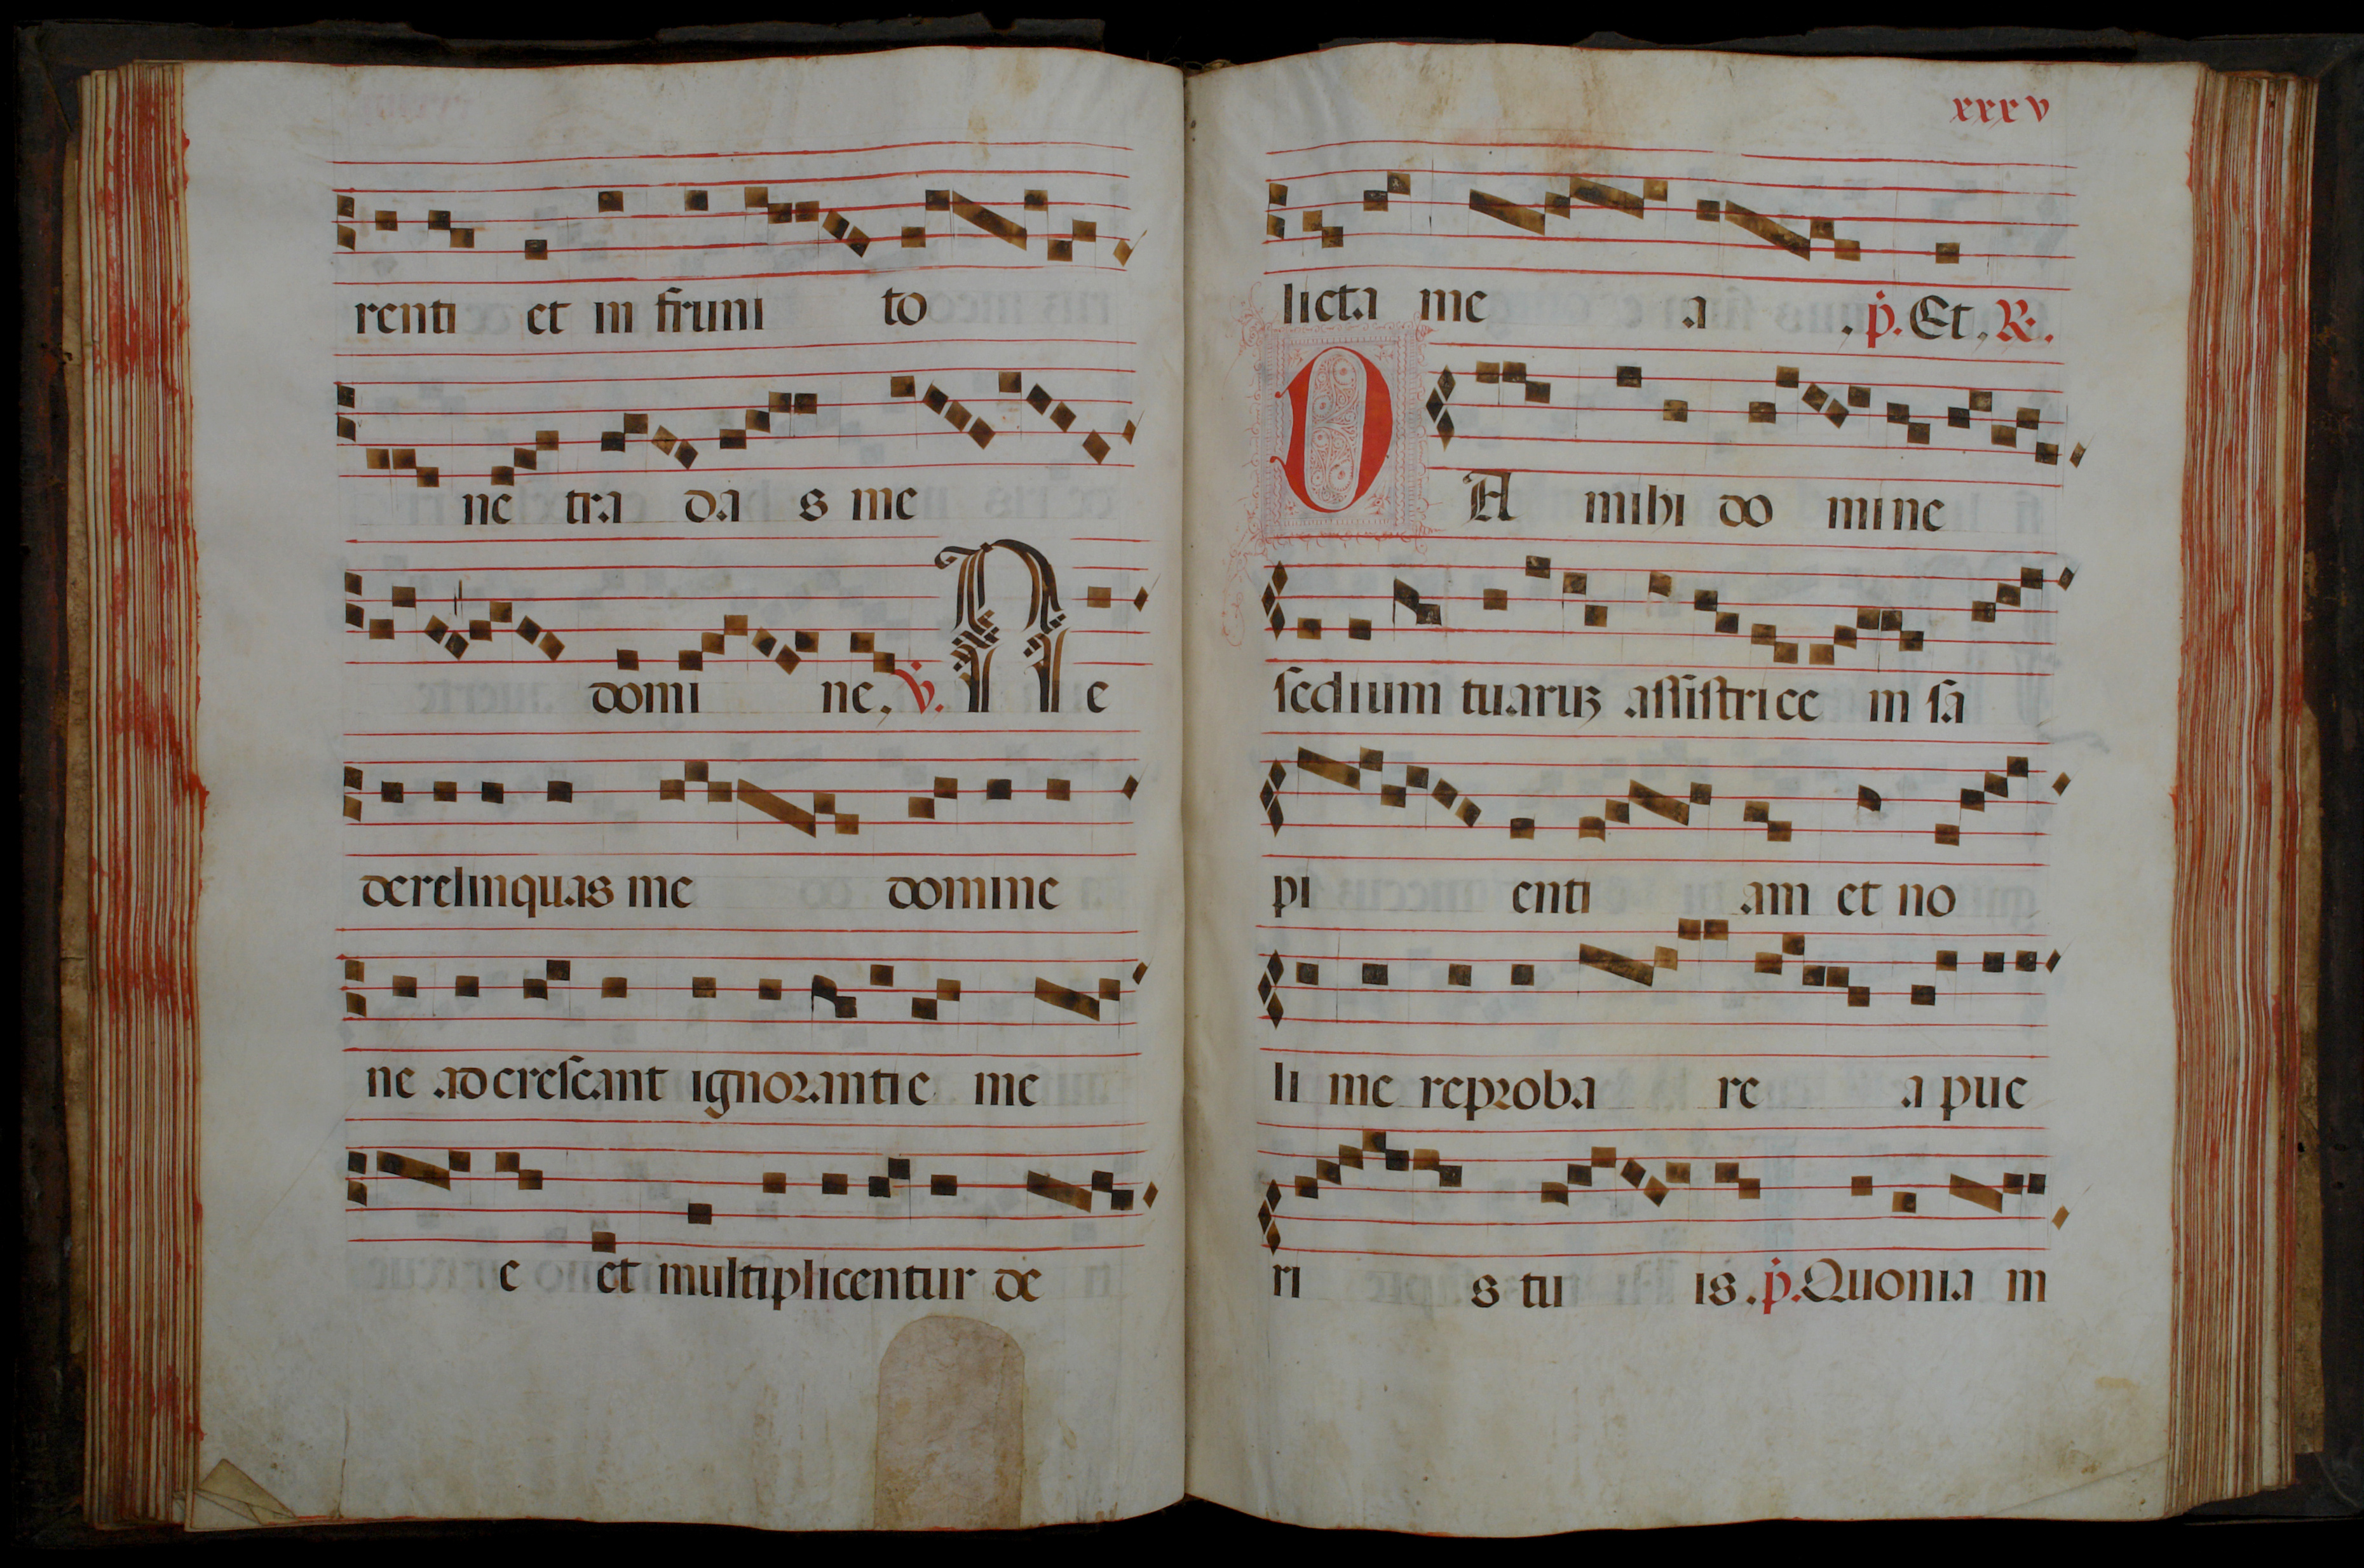 renti et in fruni to
ne tra da s me
domi ne. v. Ne
derelinquas me domine
ne adcrescant ignorantie me
e et multiplicentur de
xxxv
licta me a. p. Et. R.
DA mihi do mine
sedium tuaruꝫ assistrice m sa
pi enti am et no
li me reproba re a pue
ri s tu is. p. Quonia m